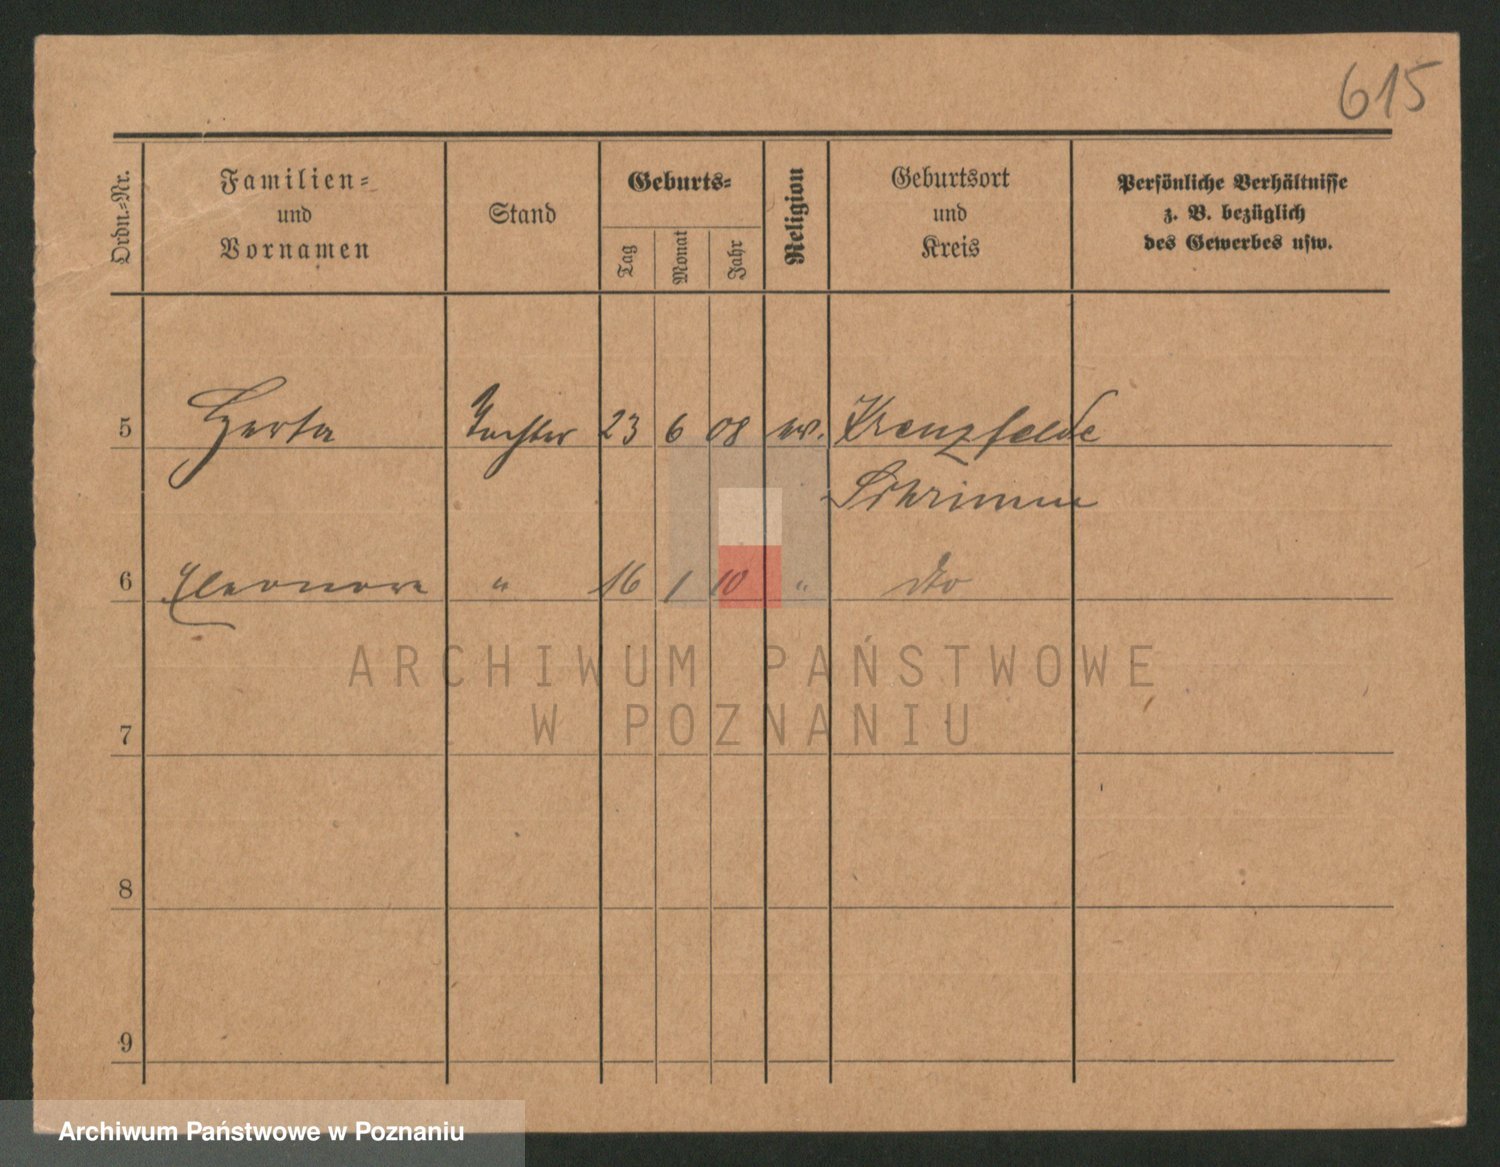 615
Ordn.-Nr.
Familien-
und
Vornamen
Stand
Geburts-
Tag
Monat
Jahr
Religion
Geburtsort
und
Kreis
Persönliche Verhältnisse
z. B. bezüglich
des Gewerbes usw.
5 Herta Tochter 23 6 08 ev. Kreuzfelde
Schrimm
6 Eleonore " 16 1 10 " dto
ARCHIWUM PAŃSTWOWE
W POZNANIU
7
8
9
Archiwum Państwowe w Poznaniu